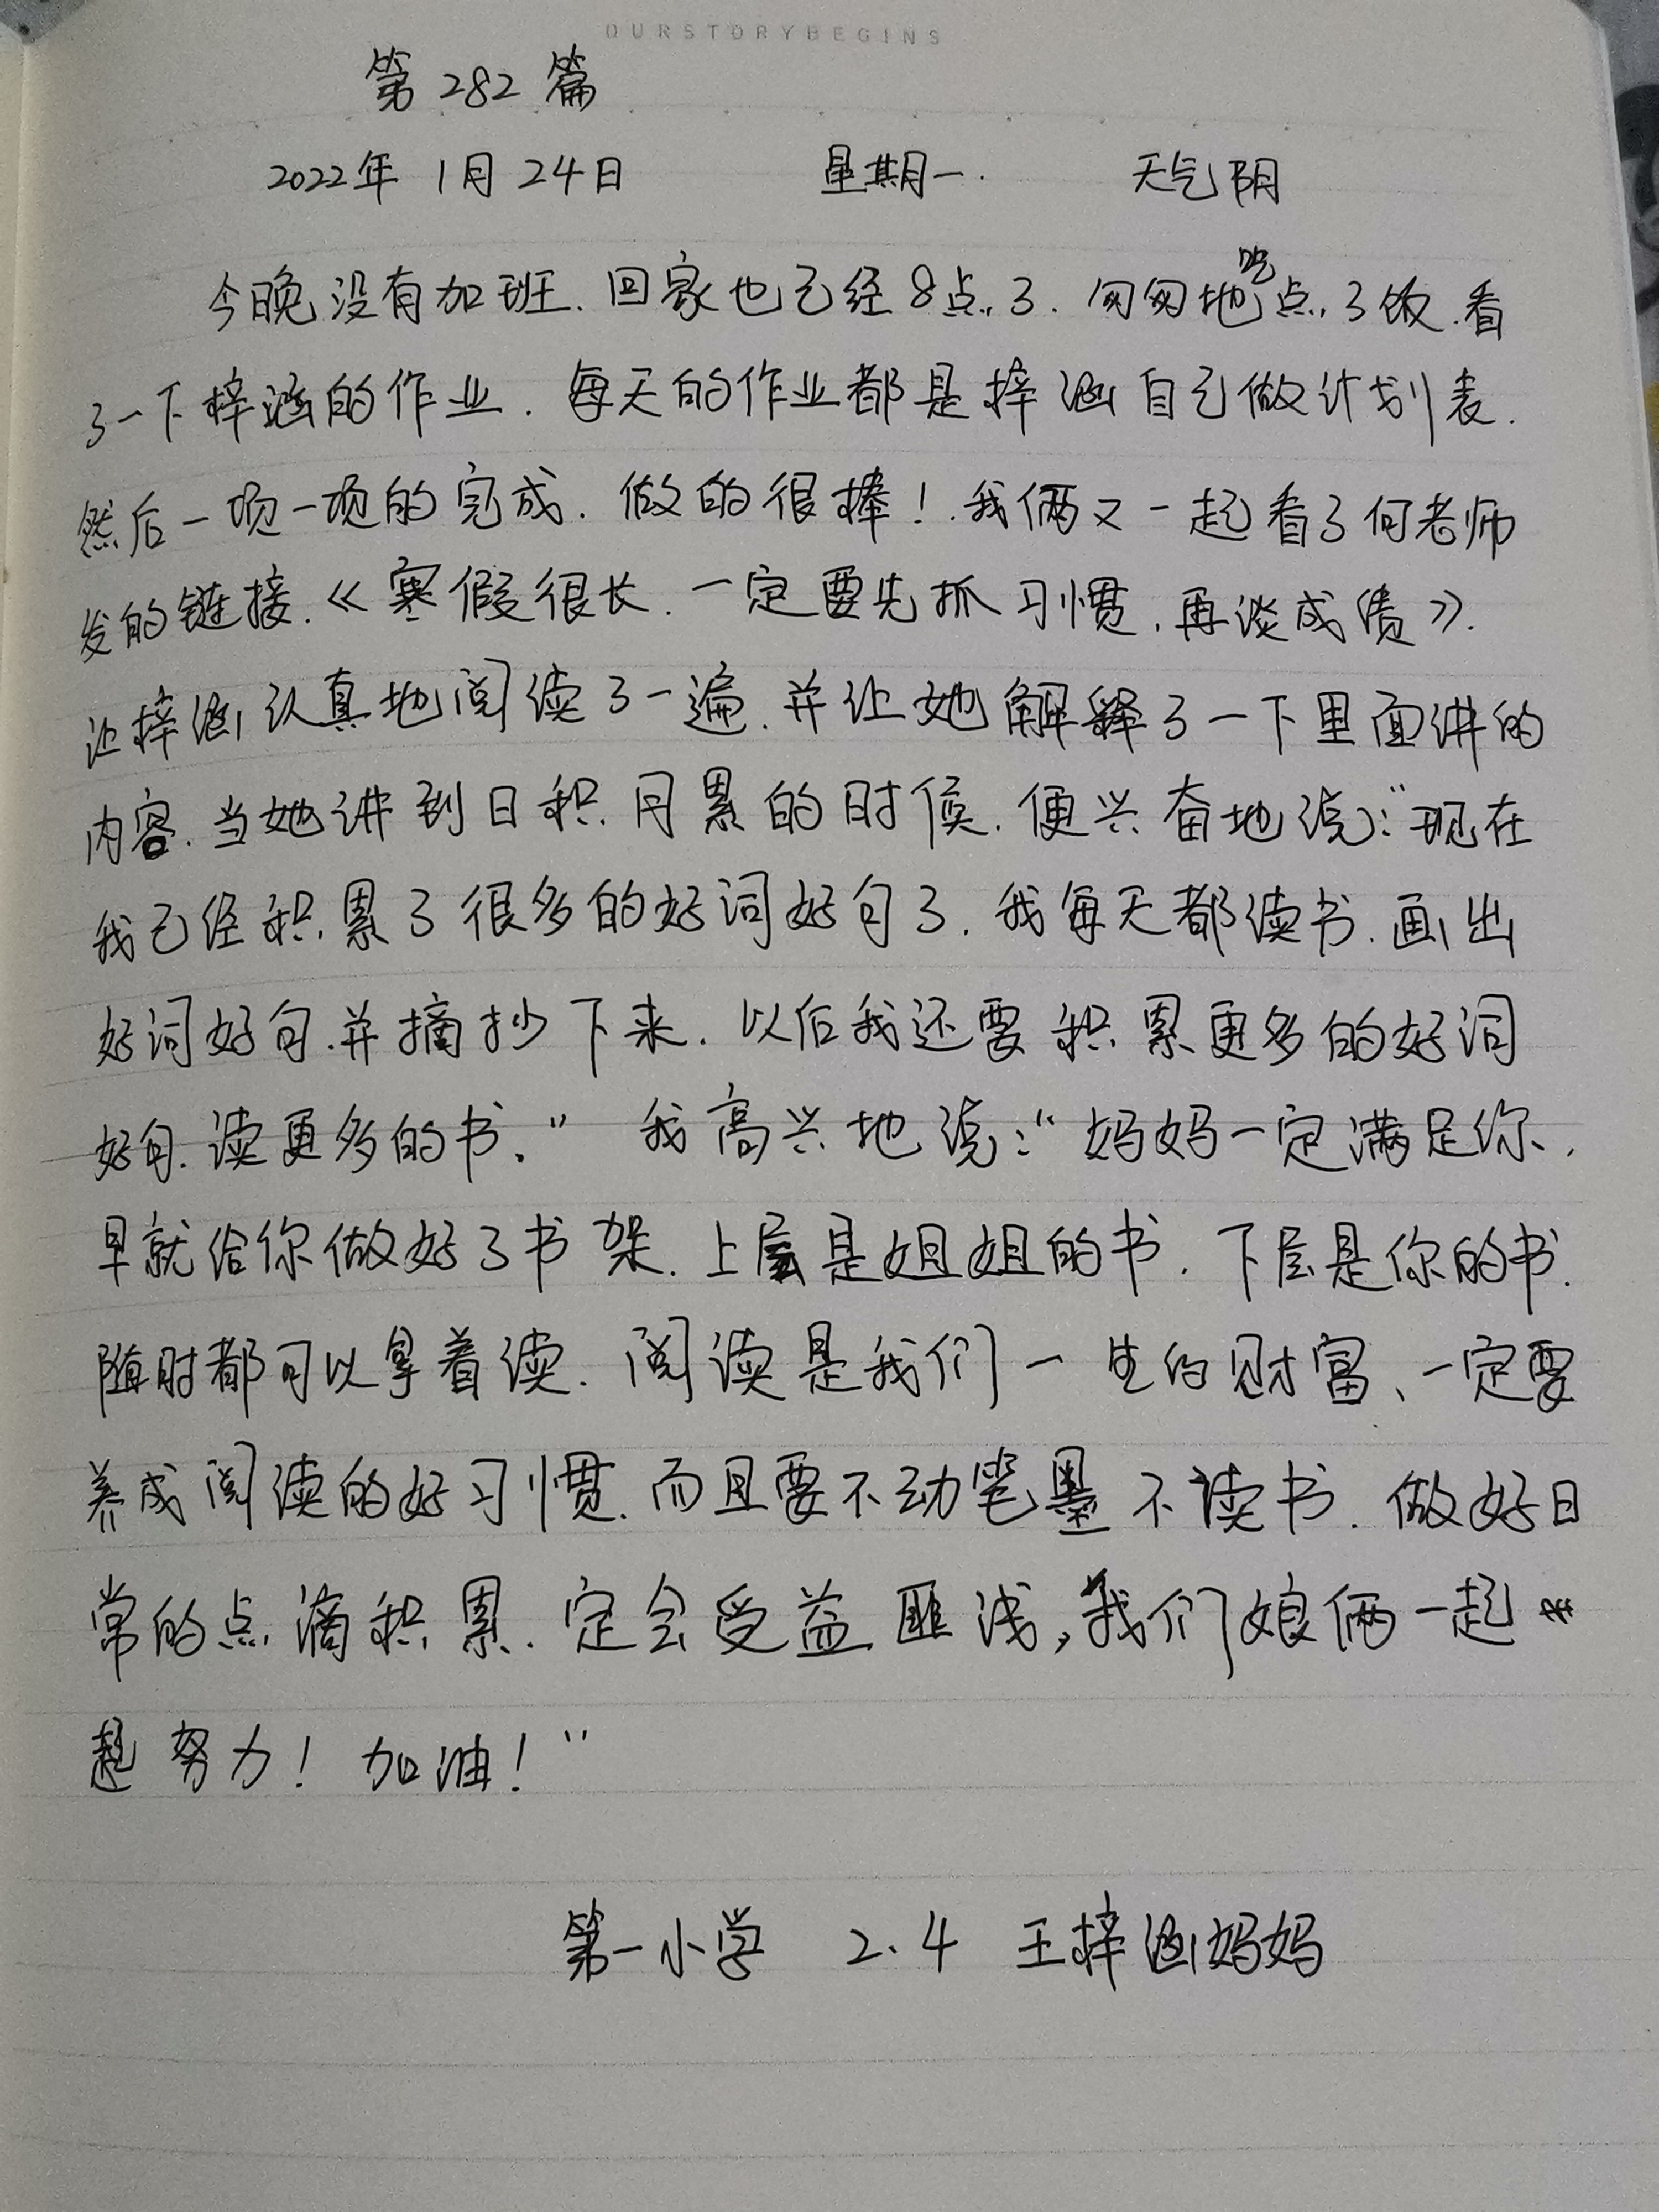 OURSTORYBEGINS
第282篇
2022年1月24日 星期一. 天气阴
今晚没有加班.回家也已经8点了.匆匆地吃点了饭.看
了一下梓涵的作业.每天的作业都是梓涵自己做计划表.
然后一项一项的完成.做的很棒!.我俩又一起看了何老师
发的链接.《寒假很长.一定要先抓习惯,再谈成绩》.
让梓涵认真地阅读了一遍.并让她解释了一下里面讲的
内容.当她讲到日积月累的时候.便兴奋地说:“现在
我已经积累了很多的好词好句了.我每天都读书.画出
好词好句.并摘抄下来.以后我还要积累更多的好词
好句.读更多的书。”我高兴地说:“妈妈一定满足你,
早就给你做好了书架.上层是姐姐的书.下层是你的书.
随时都可以拿着读.阅读是我们一生的财富、一定要
养成阅读的好习惯.而且要不动笔墨不读书.做好日
常的点滴积累.定会受益匪浅,我们娘俩一起
起努力!加油!”
第一小学 2.4 王梓涵妈妈